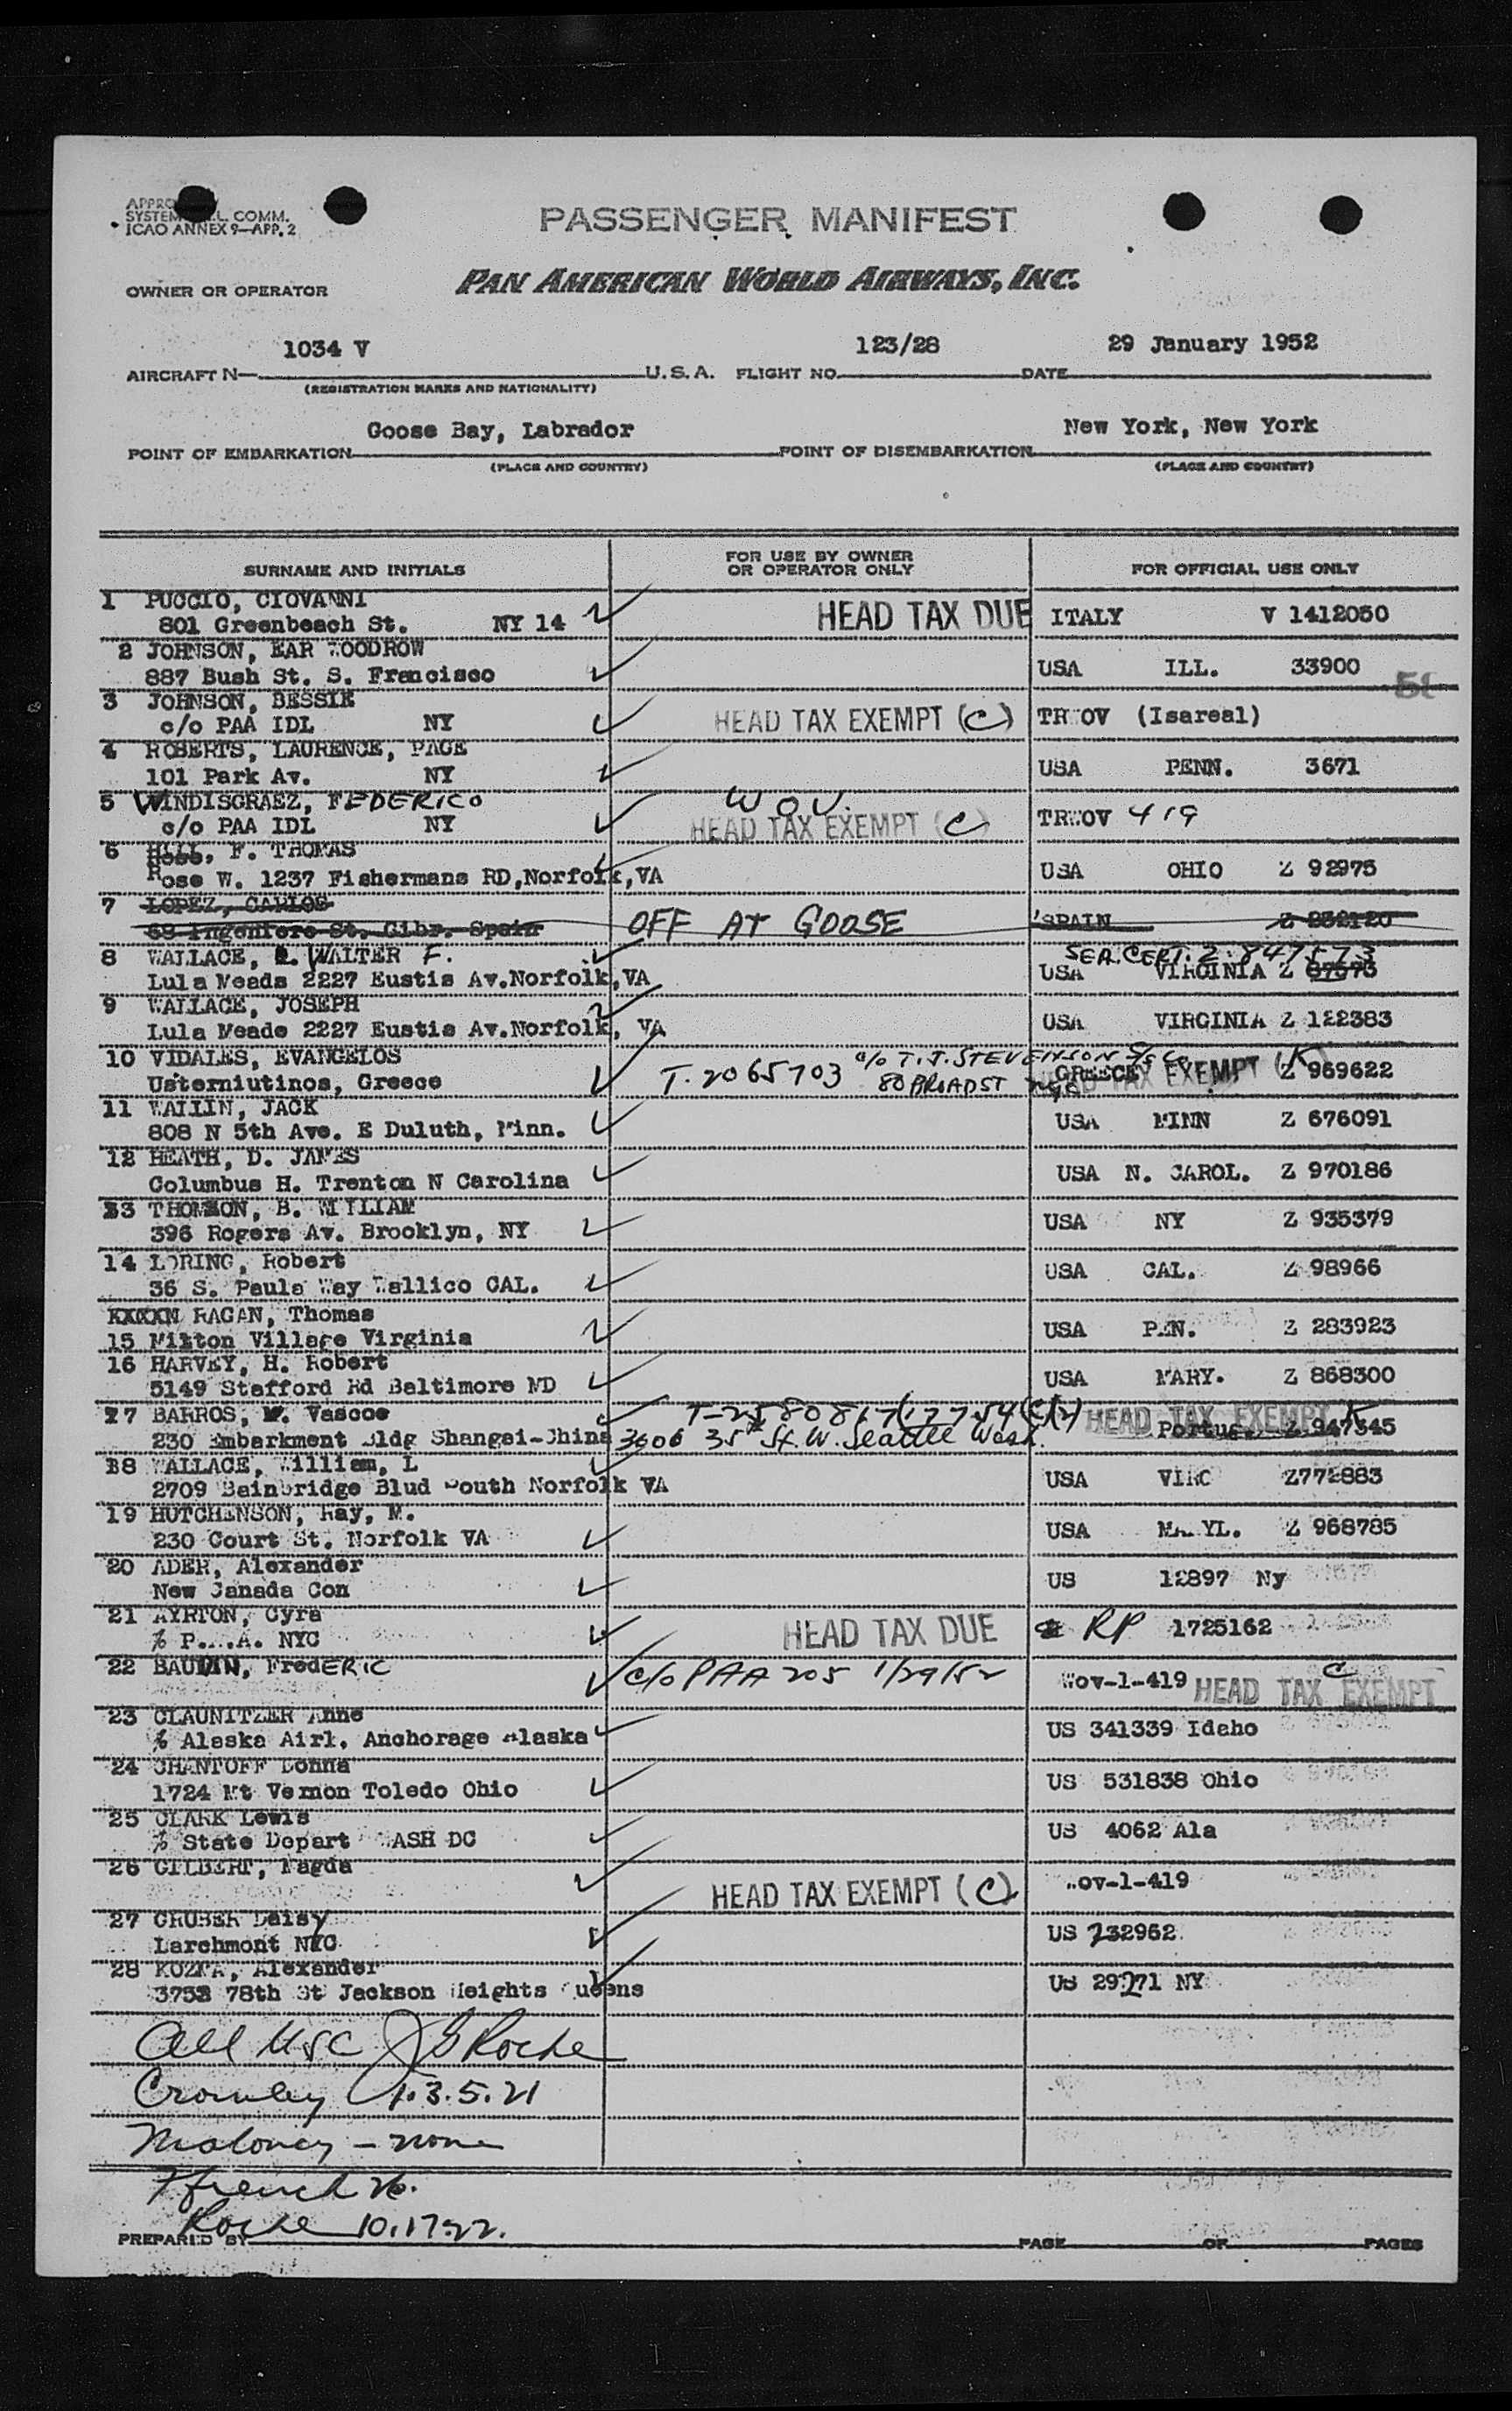 SYSTEM COMM.
ICAO ANNEX 9—APP. 2
PASSENGER MANIFEST
OWNER OR OPERATOR PAN AMERICAN WORLD AIRWAYS, INC.
1034 V 123/28 29 January 1952
AIRCRAFT N— U.S.A. FLIGHT NO. DATE
(REGISTRATION MARKS AND NATIONALITY)
Goose Bay, Labrador New York, New York
POINT OF EMBARKATION POINT OF DISEMBARKATION
(PLACE AND COUNTRY) (PLACE AND COUNTRY)
SURNAME AND INITIALS FOR USE BY OWNER OR OPERATOR ONLY FOR OFFICIAL USE ONLY
1 PUCCIO, CIOVANNI
801 Greenbeach St. NY 14 HEAD TAX DUE ITALY V 1412050
2 JOHNSON, EAR WOODROW
887 Bush St. S. Francisco USA ILL. 33900
3 JOHNSON, BESSIE
c/o PAA IDL NY HEAD TAX EXEMPT (C) TRWOV (Isareal)
4 ROBERTS, LAURENCE, PAGE
101 Park Av. NY USA PENN. 3671
5 WINDISGRAEZ, FEDERICO W O V.
c/o PAA IDL NY HEAD TAX EXEMPT (C) TRWOV 419
6 HILL, F. THOMAS
Rose W. 1237 Fishermans RD,Norfolk,VA USA OHIO Z 92975
7 LOPEZ, CARLOS
68 Ingeniero St. Gibr. Spain OFF AT GOOSE SPAIN Z 232120
8 WALLACE, WALTER F. SEA.CERT. Z.847573
Lula Meads 2227 Eustis Av.Norfolk,VA USA VIRGINIA Z 87573
9 WALLACE, JOSEPH
Lula Meade 2227 Eustis Av.Norfolk, VA USA VIRGINIA Z 122383
10 VIDALES, EVANGELOS c/o T. J. STEVENSON S/S Co
Usterniutinos, Greece T. 2065703 80 BROAD ST NYC GREECE HEAD TAX EXEMPT (K) Z 969622
11 WALLIN, JACK
808 N 5th Ave. E Duluth, Minn. USA MINN Z 676091
12 HEATH, D. JAMES
Columbus H. Trenton N Carolina USA N. CAROL. Z 970186
13 THOMSON, B. WILLIAM
396 Rogers Av. Brooklyn, NY USA NY Z 935379
14 LORING, Robert
36 S. Paula Way Wallico CAL. USA CAL. Z 98966
RAGAN, Thomas
15 Milton Village Virginia USA PEN. Z 283923
16 HARVEY, H. Robert
5149 Stafford Rd Baltimore MD USA MARY. Z 868300
17 BARROS, M. Vascoe HEAD TAX EXEMPT K
230 Embarkment Bldg Shangai-China 3606 35th St. W. Seattle Wash. Portug. Z 947345
18 WALLACE, William, L
2709 Bainbridge Blud South Norfolk VA USA VIRG Z772883
19 HUTCHENSON, Ray, M.
230 Court St. Norfolk VA USA MARYL. Z 968785
20 ADER, Alexander
New Canada Con US 12897 Ny
21 AYRTON, Cyra
% P.A.A. NYC HEAD TAX DUE RP 1725162
22 BAUDIN, FredERIC c/o PAA 205 1/29/52 Wov-1-419 HEAD TAX EXEMPT C
23 CLAUNITZER Anne
% Alaska Airl. Anchorage Alaska US 341339 Idaho
24 CHANTOFF Donna
1724 Mt Vernon Toledo Ohio US 531838 Ohio
25 CLARK Lewis
% State Depart WASH DC US 4062 Ala
26 GILBERT, Magda
HEAD TAX EXEMPT (C) Wov-1-419
27 GRUBER Daisy
Larchmont NYC US 732962
28 KOZMA, Alexander
3752 78th St Jackson Heights Queens US 29271 NY
All USC J G Roche
Crowley 1.3.5.21
Maloney – none
Ffrench 26.
Roche 10.17.22.
PREPARED BY PAGE OF PAGES